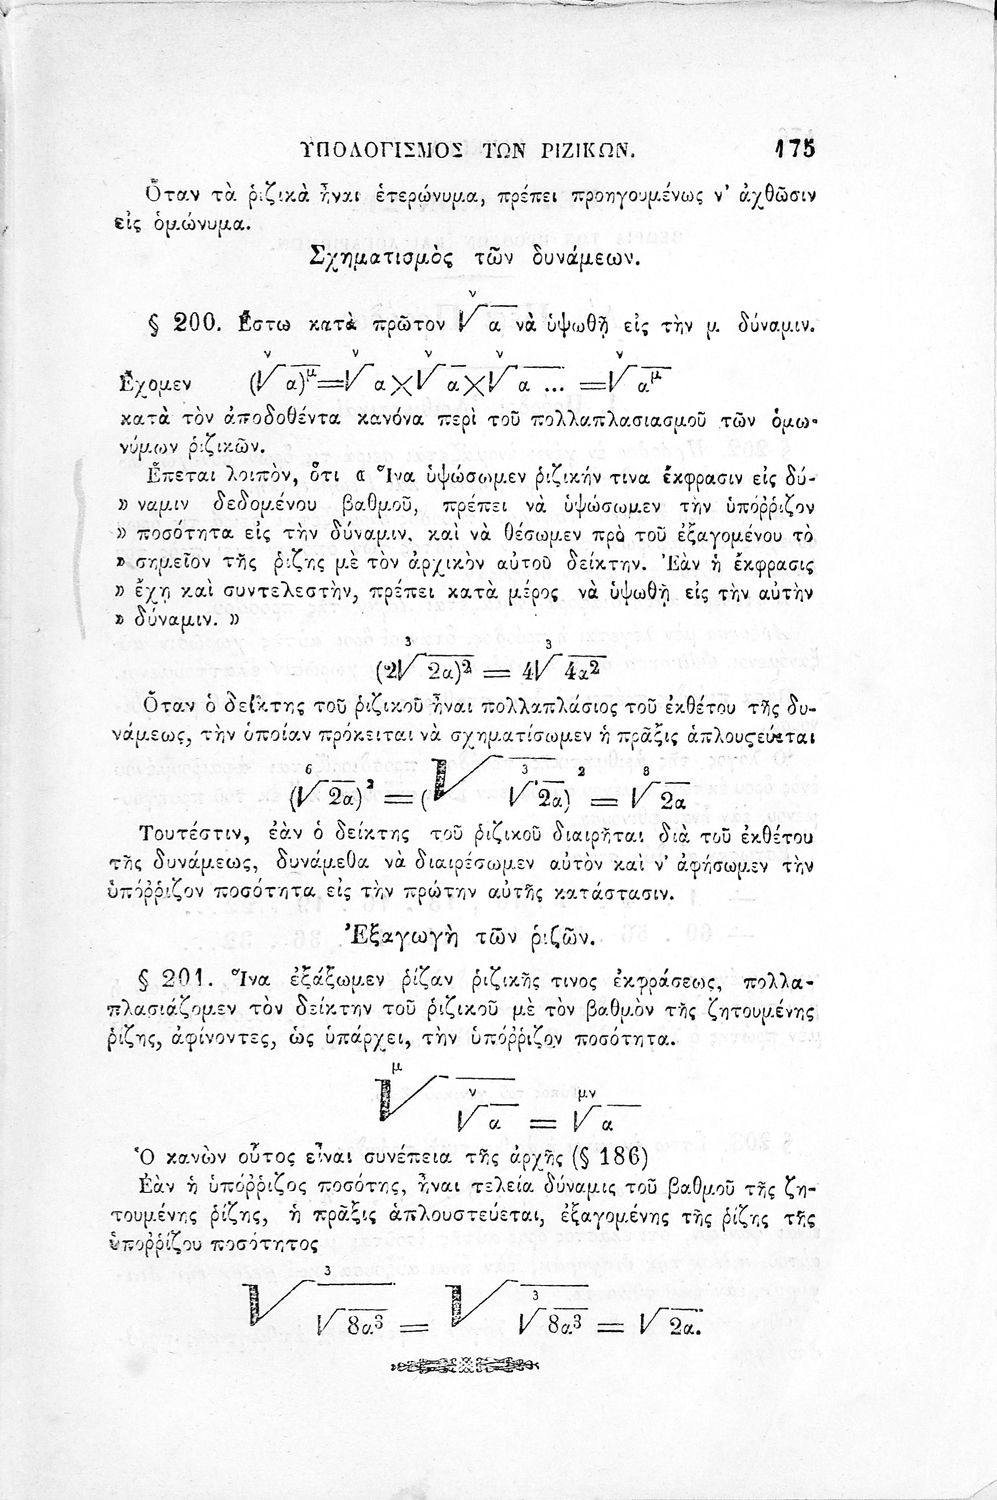 ΥΠΟΛΟΓΙΣΜΟΣ ΤΩΝ ΡΙΖΙΚΩΝ. 175
Ὅταν τὰ ῥιζικὰ ἦναι ἑτερώνυμα, πρέπει προηγουμένως ν' ἀχθῶσιν
εἰς ὁμώνυμα.
Σχηματισμὸς τῶν δυνάμεων.
§ 200. Ἔστω κατὰ πρῶτον ν√α νὰ ὑψωθῇ εἰς τὴν μ δύναμιν.
Ἔχομεν (ν√α)^μ=ν√α×ν√α×ν√α ... =ν√α^μ
κατὰ τὸν ἀποδοθέντα κανόνα περὶ τοῦ πολλαπλασιασμοῦ τῶν ὁμω-
νύμων ῥιζικῶν.
Ἕπεται λοιπὸν, ὅτι « Ἵνα ὑψώσωμεν ῥιζικήν τινα ἔκφρασιν εἰς δύ-
» ναμιν δεδομένου βαθμοῦ, πρέπει νὰ ὑψώσωμεν τὴν ὑπόῤῥιζον
» ποσότητα εἰς τὴν δύναμιν, καὶ νὰ θέσωμεν πρὸ τοῦ ἐξαγομένου τὸ
» σημεῖον τῆς ῥίζης μὲ τὸν ἀρχικὸν αὐτοῦ δείκτην. Ἐὰν ἡ ἔκφρασις
» ἔχῃ καὶ συντελεστὴν, πρέπει κατὰ μέρος νὰ ὑψωθῇ εἰς τὴν αὐτὴν
» δύναμιν. »
(2 3√2α)² = 4 3√4α²
Ὅταν ὁ δείκτης τοῦ ῥιζικοῦ ἦναι πολλαπλάσιος τοῦ ἐκθέτου τῆς δυ-
νάμεως, τὴν ὁποίαν πρόκειται νὰ σχηματίσωμεν ἡ πρᾶξις ἁπλουϛεύεται
(6√2α)² = (√ 3√2α)² = 3√2α
Τουτέστιν, ἐὰν ὁ δείκτης τοῦ ῥιζικοῦ διαιρῆται διὰ τοῦ ἐκθέτου
τῆς δυνάμεως, δυνάμεθα νὰ διαιρέσωμεν αὐτὸν καὶ ν' ἀφήσωμεν τὴν
ὑπόῤῥιζον ποσότητα εἰς τὴν πρώτην αὐτῆς κατάστασιν.
Ἐξαγωγὴ τῶν ῥιζῶν.
§ 201. Ἵνα ἐξάξωμεν ῥίζαν ῥιζικῆς τινος ἐκφράσεως, πολλα-
πλασιάζομεν τὸν δείκτην τοῦ ῥιζικοῦ μὲ τὸν βαθμὸν τῆς ζητουμένης
ῥίζης, ἀφίνοντες, ὡς ὑπάρχει, τὴν ὑπόῤῥιζον ποσότητα.
μ√ ν√α = μν√α
Ὁ κανὼν οὗτος εἶναι συνέπεια τῆς ἀρχῆς (§ 186)
Ἐὰν ἡ ὑπόῤῥιζος ποσότης, ἦναι τελεία δύναμις τοῦ βαθμοῦ τῆς ζη-
τουμένης ῥίζης, ἡ πρᾶξις ἁπλουστεύεται, ἐξαγομένης τῆς ῥίζης τῆς
ὑποῤῥίζου ποσότητος
3√ √8α³ = √ 3√8α³ = √2α.